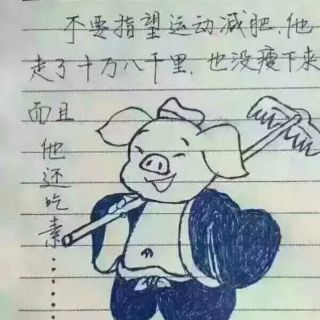 不要指望运动减肥.他
走了十万八千里.也没瘦下来
而且
他还吃素……